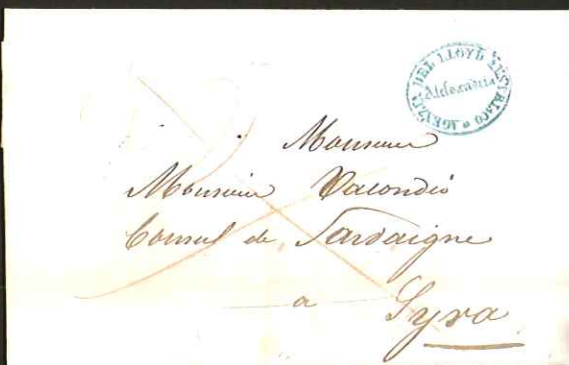 AGENZIA DEL LLOYD AUSTRIACO
Alessandria
Monsieur
Monsieur Vacondio
Consul de Sardaigne
a
Syra